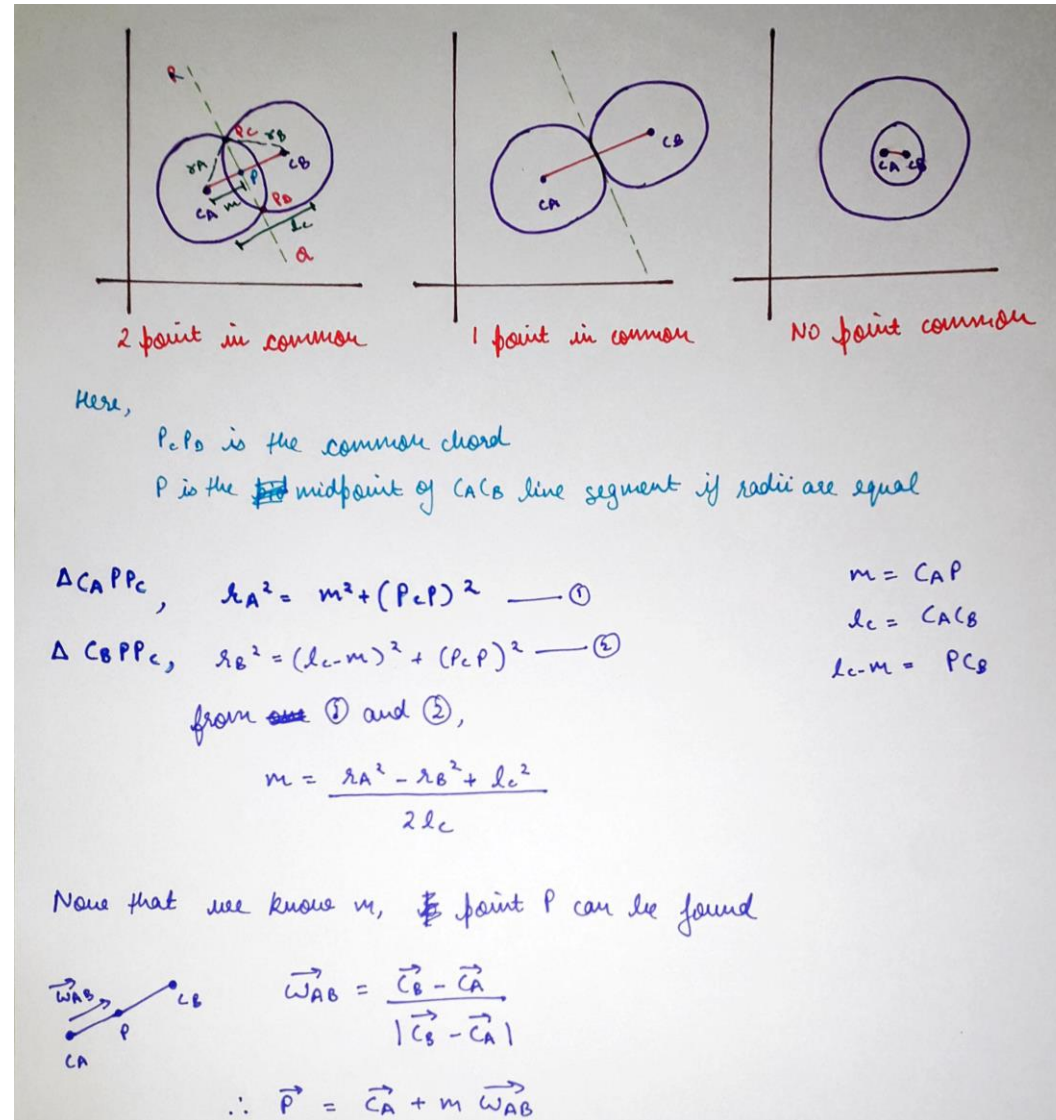 R
PC
rB
rA
CB
P
CA
m
PD
lc
Q
CB
CA
CA
CB
2 point in common
1 point in common
No point common
Here,
PcPD is the common chord
P is the midpoint of CACB line segment if radii are equal
Δ CA PPc, rA² = m² + (PcP)² —— ①
Δ CBPPc, rB² = (lc-m)² + (PcP)² —— ②
m = CAP
lc = CACB
lc-m = PCB
from ① and ②,
m = rA² - rB² + lc²
2lc
Now that we know m, point P can be found
WAB
CB
P
CA
WAB = CB - CA
|CB - CA|
∴ P = CA + m WAB